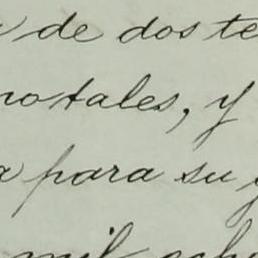 de dos te
notales, y
a para su y
mil ocho